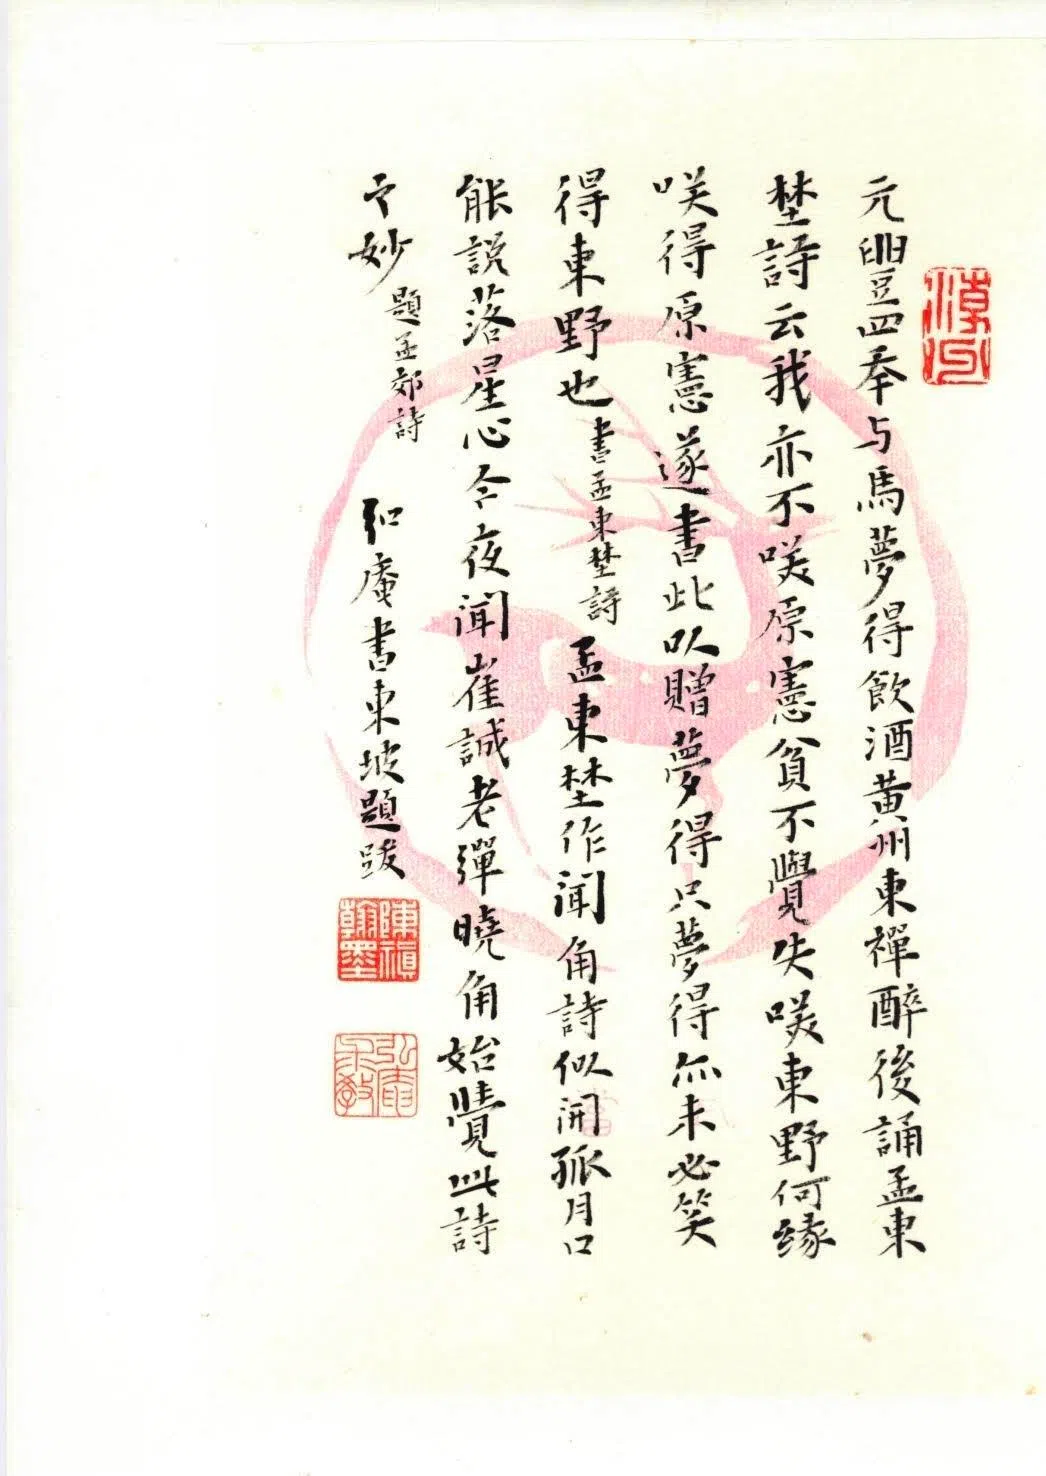 元豐四秊与馬夢得飲酒黃州東禪醉後誦孟東
埜詩云我亦不咲原憲貧不覺失咲東野何緣
咲得原憲遂書此以贈夢得只夢得亦未必笑
得東野也 書孟東埜詩 孟東埜作聞角詩似開孤月口
能說落星心今夜聞崔誠老彈曉角始覺此詩
之妙 題孟郊詩 弘庵書東坡題跋
陳禎翰墨